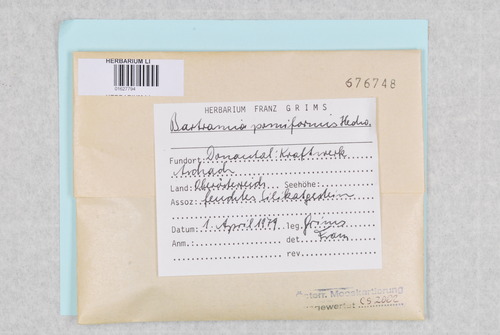 HERBARIUM LI
01627794
676748
HERBARIUM FRANZ GRIMS
Bartramia pomiformis Hedw.
Fundort: Donautal: Kraftwerk
Aschach
Land: Oberösterreich Seehöhe:
Assoz: feuchtes Silikatgestein
Datum: 1. April 1979 leg. Grims
Anm.: det. Franz
rev.
Österr. Mooskartierung
ausgewertet